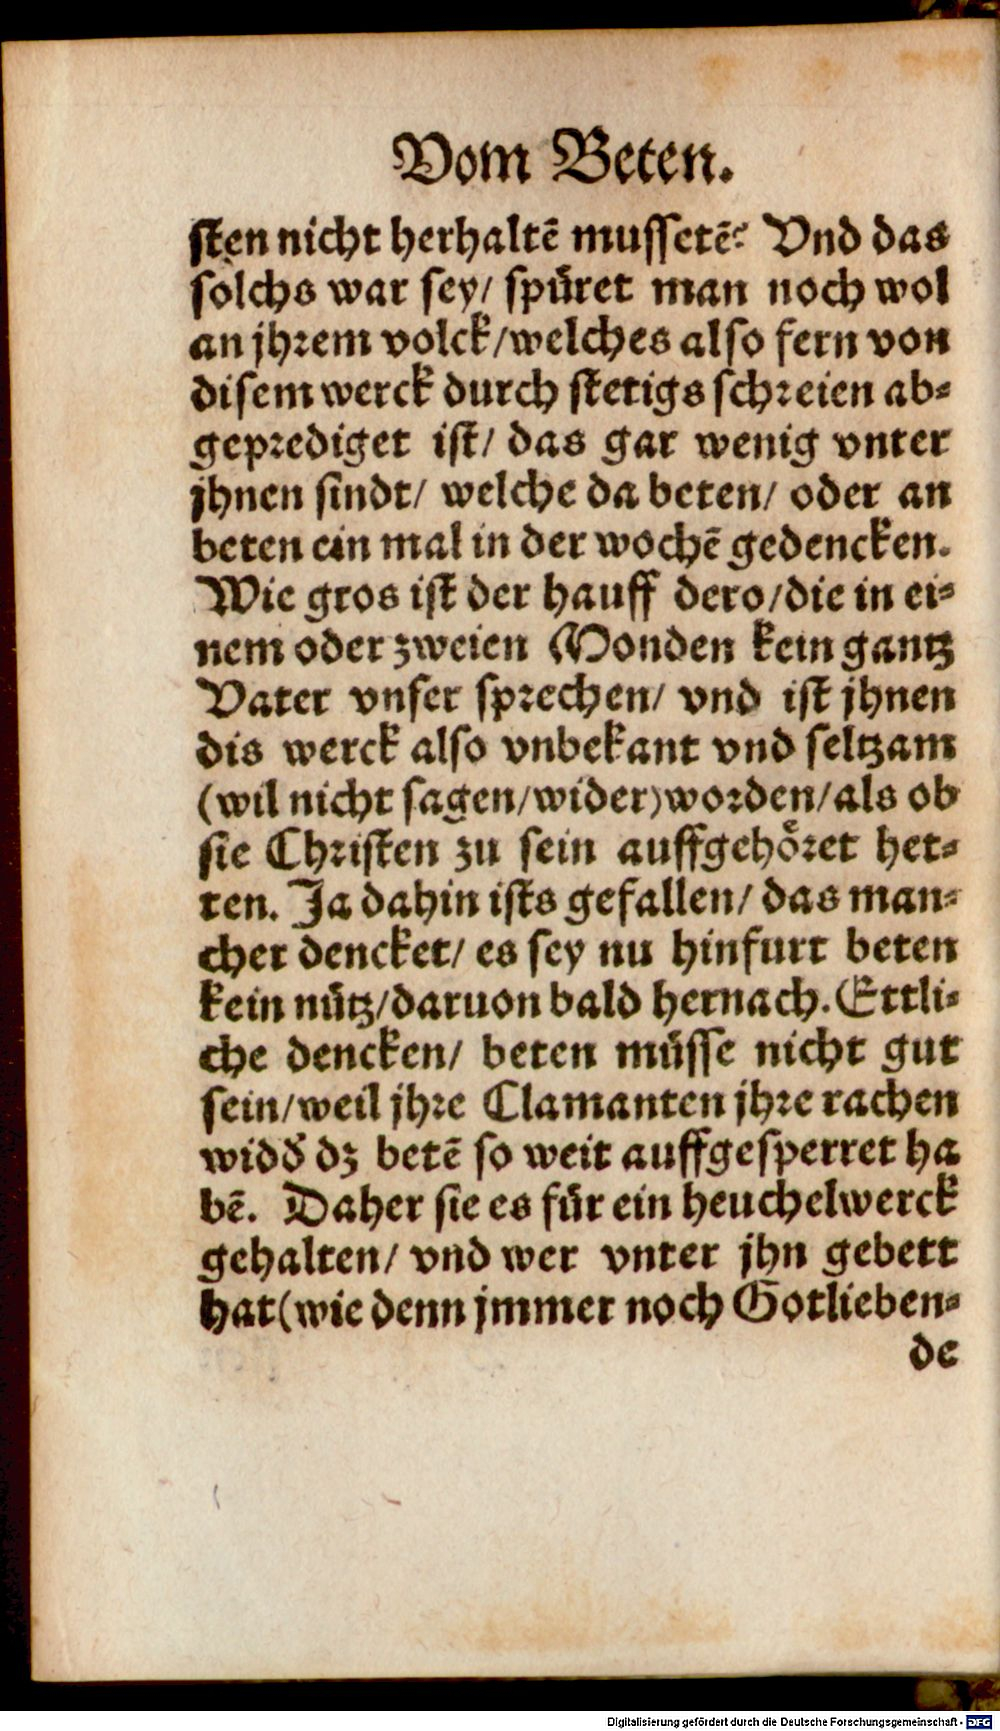 Vom Beten.
sten nicht herhaltē mussetē? Vnd das
solchs war sey/ spüret man noch wol
an jhrem volck/welches also fern von
disem werck durch stetigs schreien ab⸗
geprediget ist/ das gar wenig vnter
jhnen sindt/ welche da beten/ oder an
beten ein mal in der wochē gedencken.
Wie gros ist der hauff dero/die in ei⸗
nem oder zweien Monden kein gantz
Vater vnser sprechen/ vnd ist jhnen
dis werck also vnbekant vnd seltzam
(wil nicht sagen/wider)worden/als ob
sie Christen zu sein auffgehöret het⸗
ten. Ja dahin ists gefallen/ das man⸗
cher dencket/ es sey nu hinfurt beten
kein nütz/daruon bald hernach. Ettli⸗
che dencken/ beten müsse nicht gut
sein/weil jhre Clamanten jhre rachen
widd̕ dz betē so weit auffgesperret ha
bē. Daher sie es für ein heuchelwerck
gehalten/ vnd wer vnter jhn gebett
hat(wie denn jmmer noch Gotlieben⸗
de
Digitalisierung gefördert durch die Deutsche Forschungsgemeinschaft - DFG